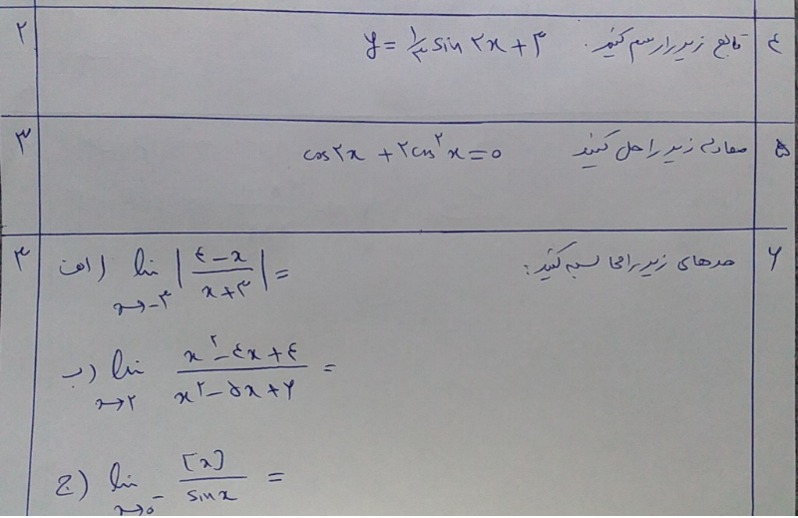 ۴ تابع زیر را رسم کنید. y = ۱/۳ sin ۲x + ۳ ۲
۵ معادله زیر را حل کنید cos۲x + ۲cos^۲ x = ۰ ۳
۶ حدهای زیر را محاسبه کنید: ۳
الف) lim x→-۳ |(۴-x)/(x+۳)| =
ب) lim x→۲ (x^۲-۴x+۴)/(x^۲-۵x+۶) =
ج) lim x→۰^- [x]/sin x =